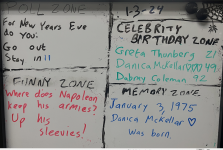 POLL ZONE
For New Years Eve
do you:
Go out
Stay in
FUNNY ZONE
Where does Napolean
keep his armies?
Up his
sleevies!
1-3-24
CELEBRITY
BIRTHDAY ZONE
Greta Thunberg 21
Danica McKellar 49
Dabney Coleman 92
MEMORY ZONE
January 3, 1975
Danica McKellar
Was born